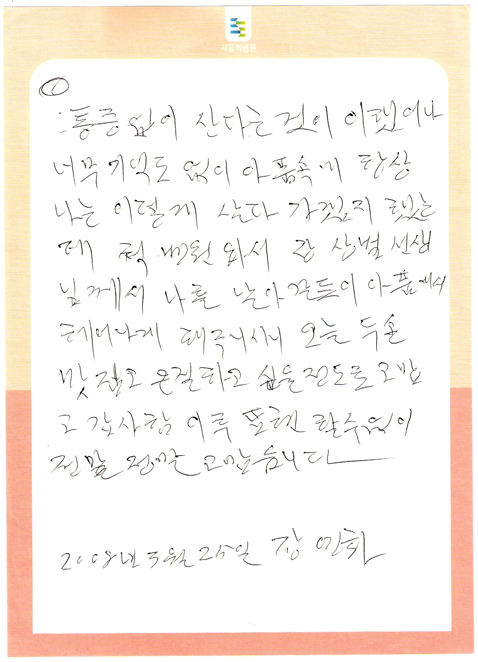 서울척병원
①
통증 없이 산다는 것이 이랬어나
너무 기억도 없이 아픔속에 항상
나는 이렇게 살다 가겠지 했는
데 척 병원 와서 강 상범 선생
님께서 나를 날아 끈듯이 아픔에서
테어나게 해주니시니 오늘 두손
맞 잡고 온절하고 싶을 전도로 고맙
고 감사함 이루 표현 할수없이
정말 정말 고맙습니다
2008년 5월 25일 장